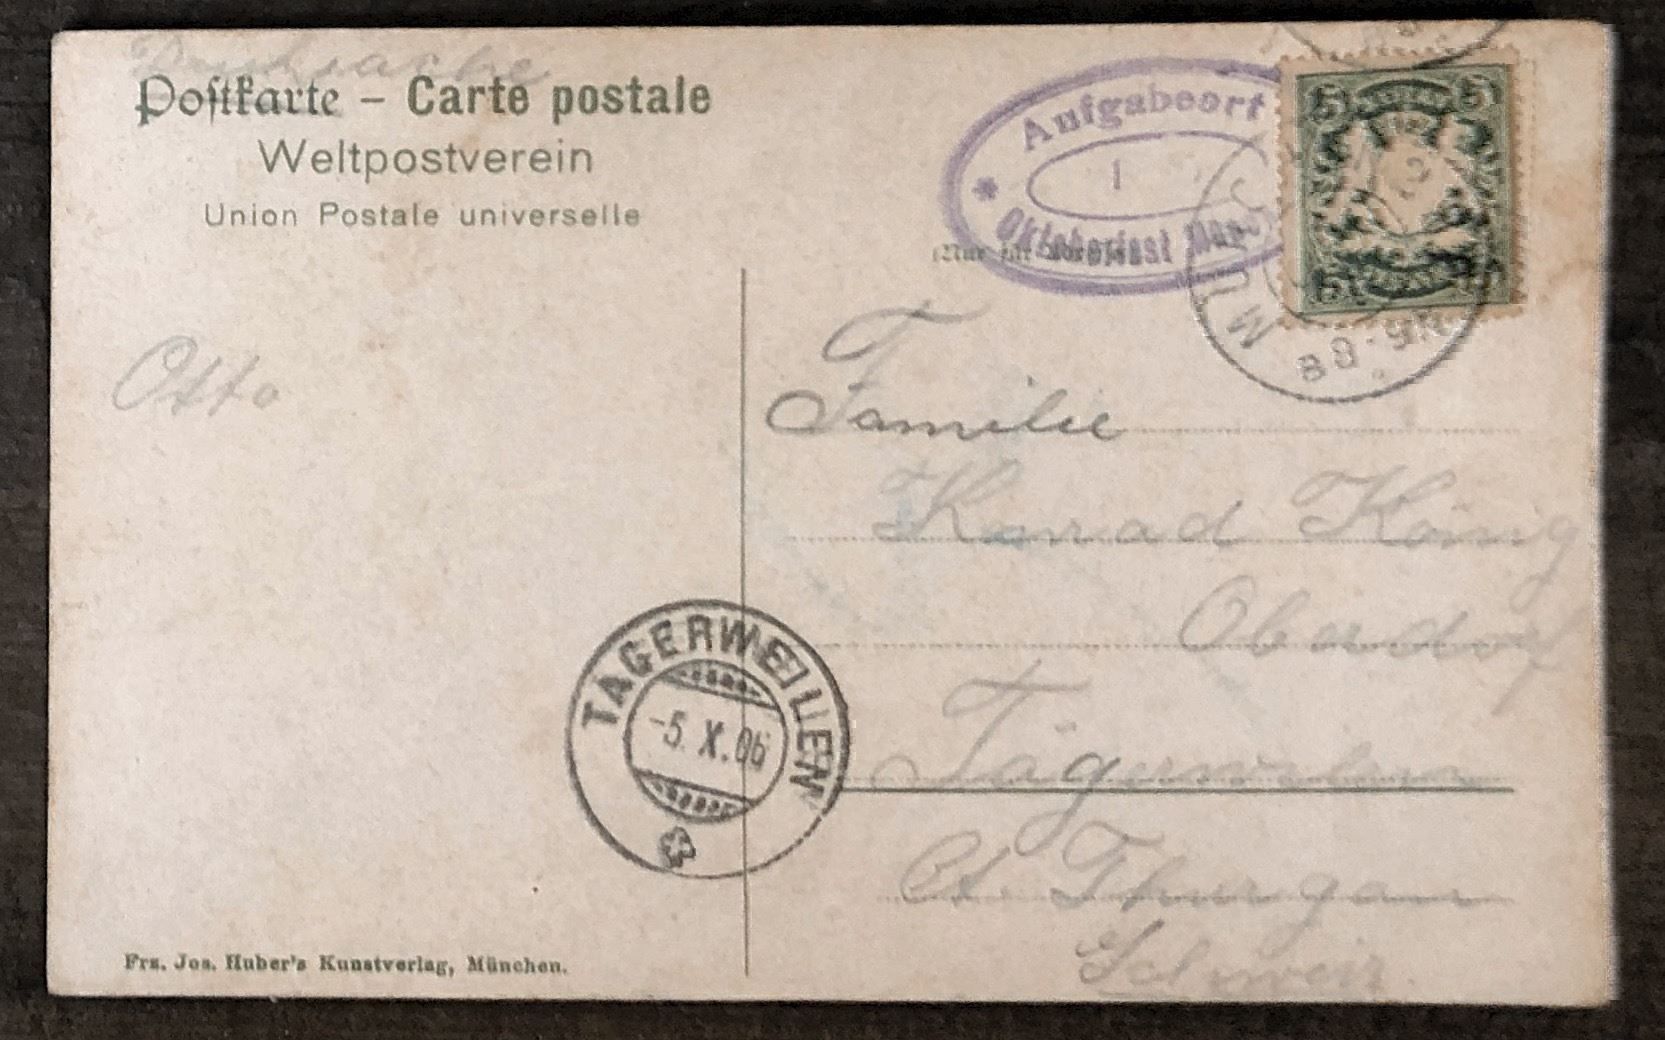 Drucksache
Postkarte – Carte postale
Weltpostverein
Union Postale universelle
Aufgabeort
1
* Oktoberfest
Nur für
5 5
5
MÜ
Otto
Familie
Konrad König
Oberdorf
Tägerweilen
Ct. Thurgau
Schweiz.
TÄGERWEILEN
-5. X. 06
Frz. Jos. Huber's Kunstverlag, München.